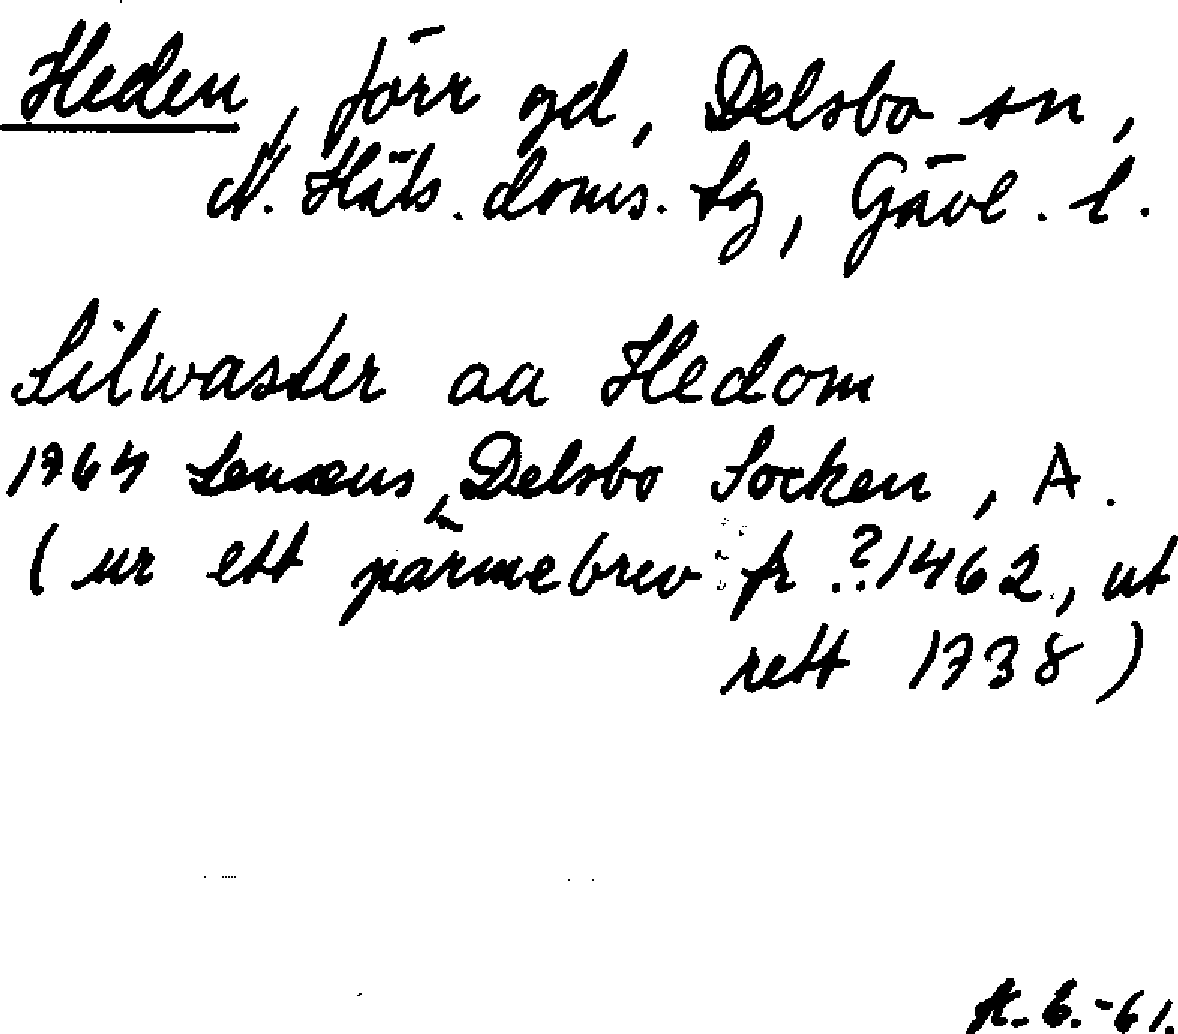 Heden, förr gd, Delsbo sn,
N. Häls. doms. sg, Gävl. l.
Silwaster aa Hedom
1764 Lenæus, Delsbo Socken, A.
(ur ett pärmebrev fr. ?1462, ut
rett 1738)
K.B.-61.